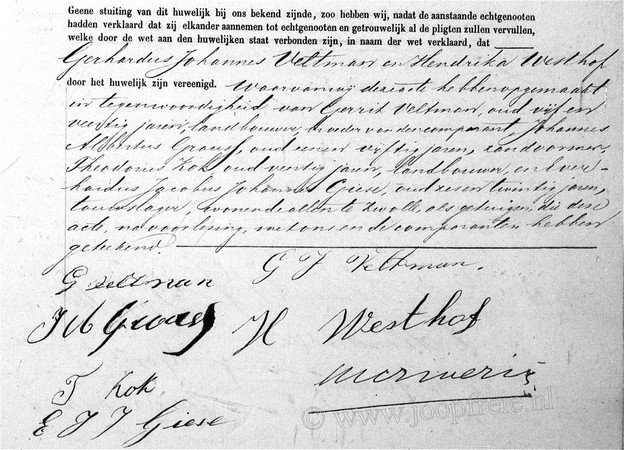 Geene stuiting van dit huwelijk bij ons bekend zijnde, zoo hebben wij, nadat de aanstaande echtgenooten
hadden verklaard dat zij elkander aannemen tot echtgenooten en getrouwelijk al de pligten zullen vervullen,
welke door de wet aan den huwelijken staat verbonden zijn, in naam der wet verklaard, dat
Gerhardus Johannes Veltman en Hendrika Westhof
door het huwelijk zijn vereenigd. Waarvan wij deze acte hebben opgemaakt
in tegenwoordigheid van Gerrit Veltman, oud vijf en
veertig jaren, landbouwer, broeder van den comparant, Johannes
Albertus Graus, oud een en vijftig jaren, zandvormer,
Theodorus Kok, oud veertig jaren, landbouwer, en Ever-
hardus Jacobus Johannes Giese, oud zes en twintig jaren,
touwslager, wonende allen te Zwolle, als getuigen, die deze
acte, na voorlezing, met ons en de comparanten hebben
geteekend.
G Veltman G J Veltman.
J A Graus H Westhof
T Kok
E J J Giese
© www.joopfreie.nl